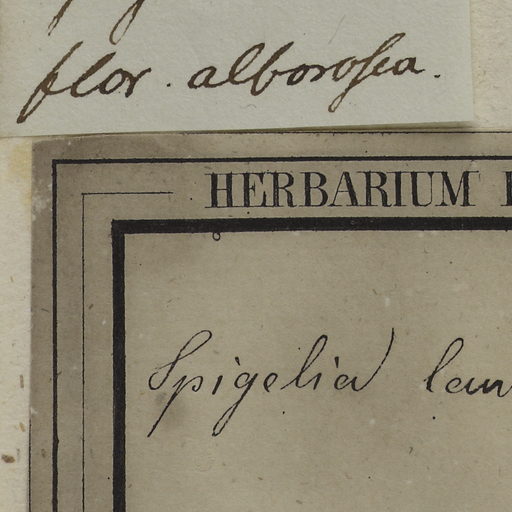 flor. alborosea.
HERBARIUM
Spigelia